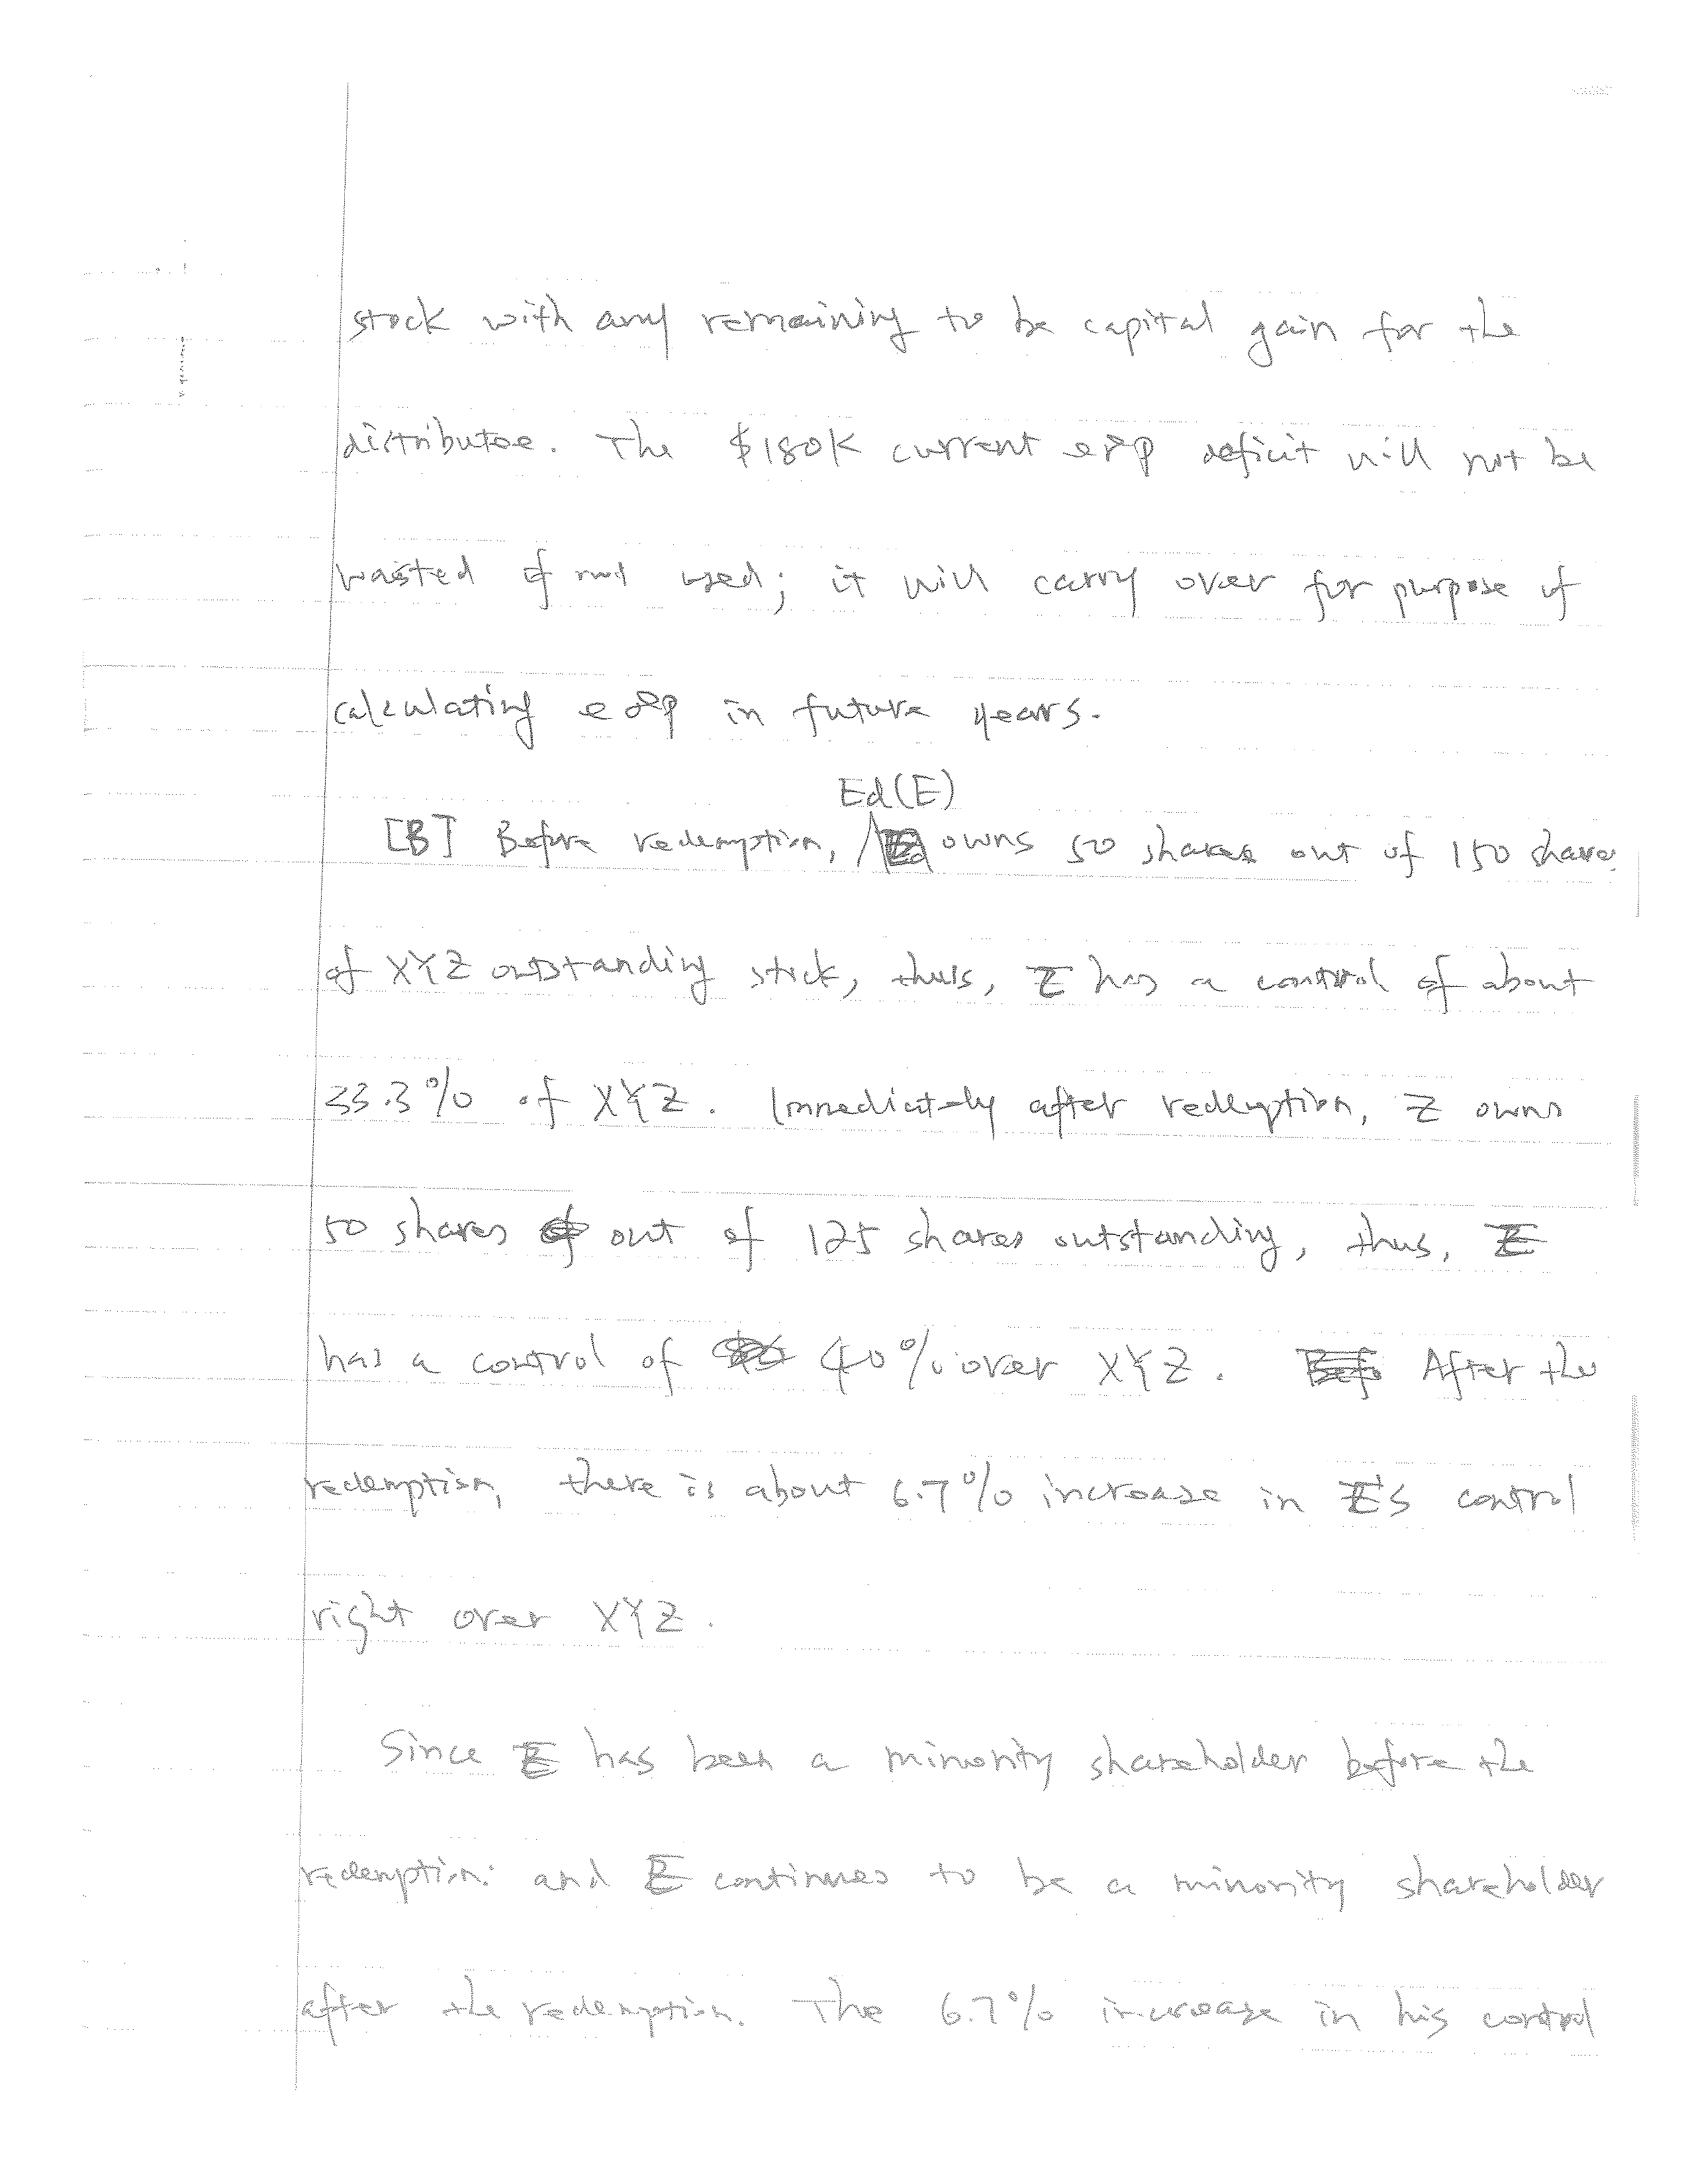 stock with any remaining to be capital gain for the
distributee. The $180K current e&p deficit will not be
wasted if not used; it will carry over for purpose of
calculating e&p in future years.
Ed(E)
[B] Before redemption, owns 50 shares out of 150 shares
of XYZ outstanding stock, thus, E has a control of about
33.3% of XYZ. Immediately after redemption, E owns
50 shares out of 125 shares outstanding, thus, E
has a control of 40% over XYZ. After the
redemption, there is about 6.7% increase in E's control
right over XYZ.
Since E has been a minority shareholder before the
redemption and E continues to be a minority shareholder
after the redemption. The 6.7% increase in his control